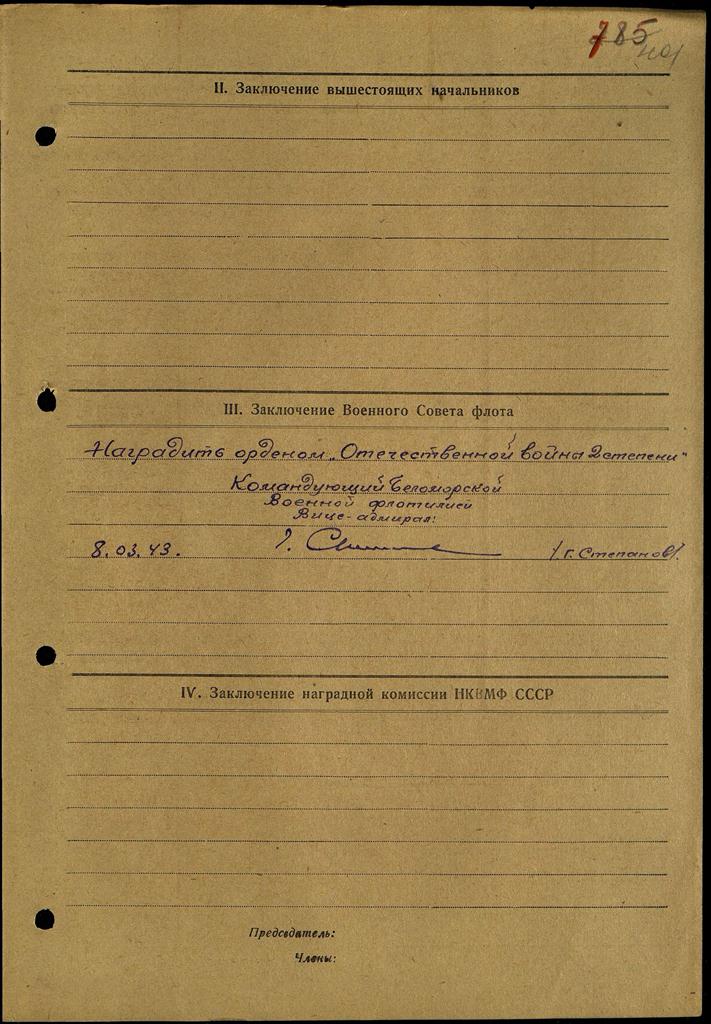 785
401
II. Заключение вышестоящих начальников
III. Заключение Военного Совета флота
Наградить орденом „Отечественной войны 2 степени"
Командующий Беломорской
Военной флотилией
Вице-адмирал:
8.03.43. /Г. Степанов/.
IV. Заключение наградной комиссии НКВМФ СССР
Председатель:
Члены: